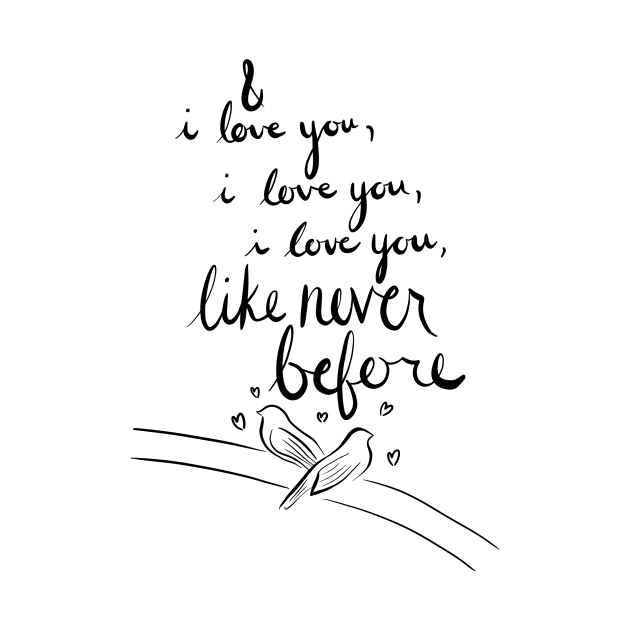 &
i love you,
i love you,
i love you,
like never
before